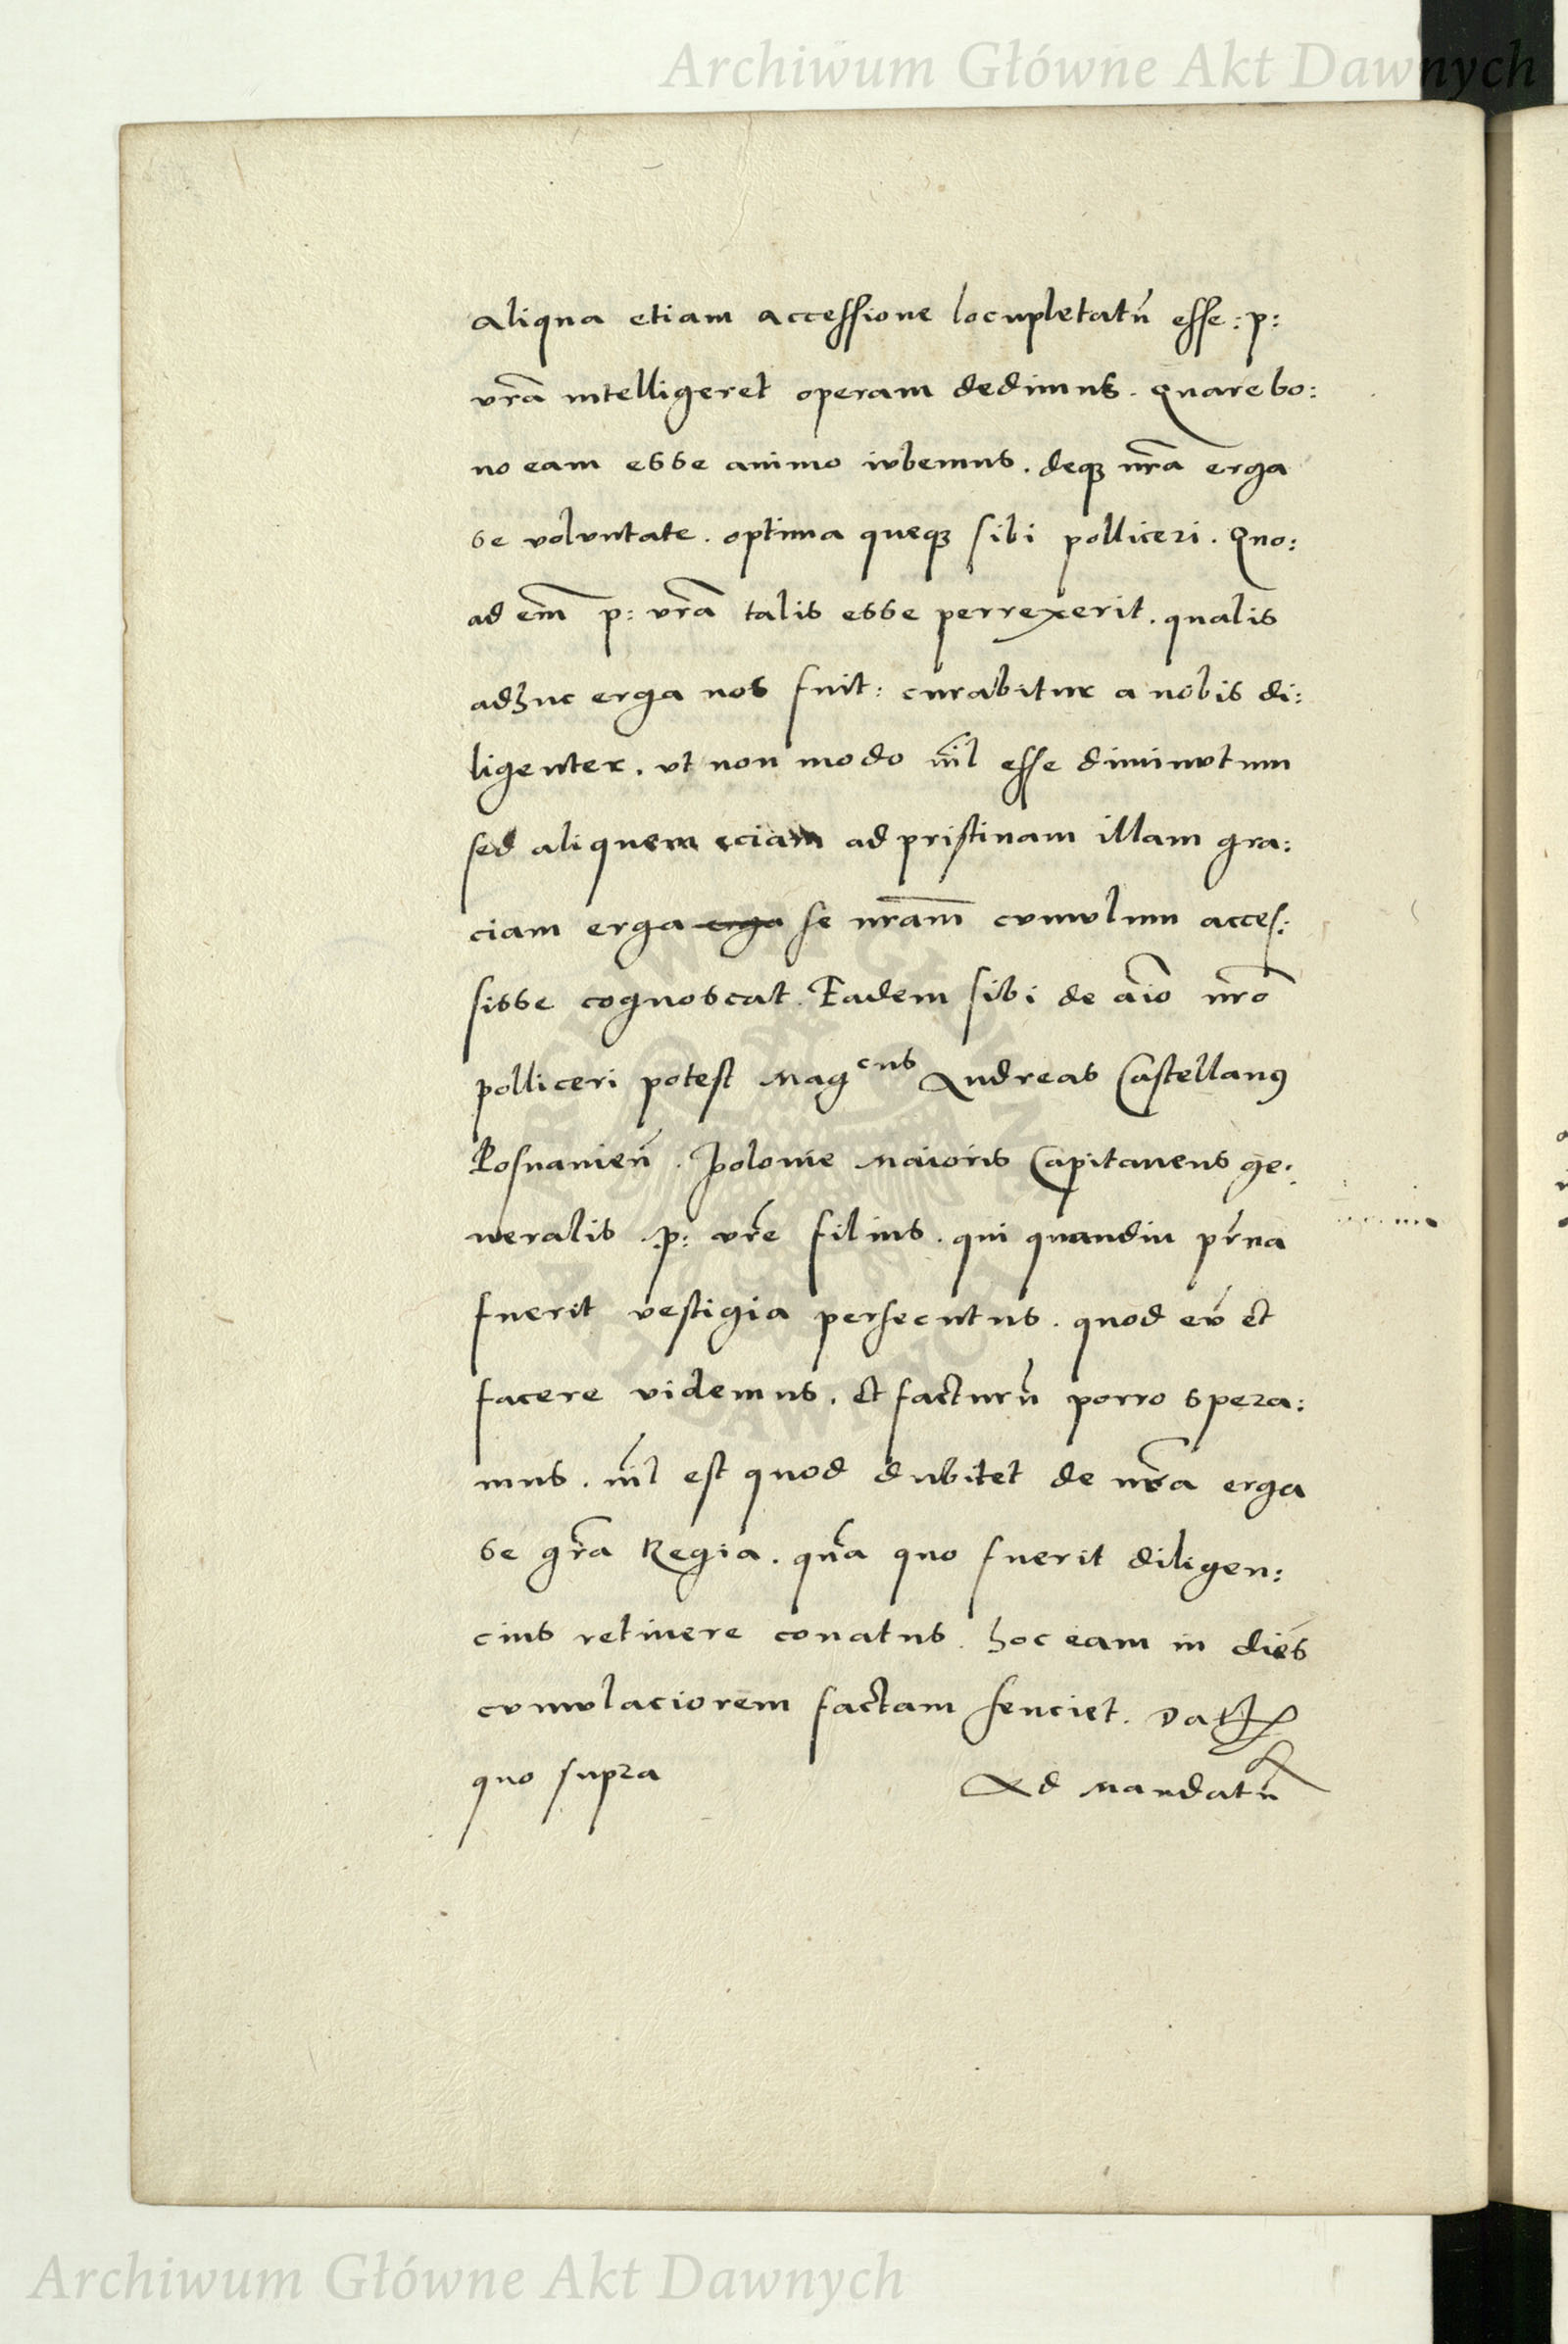 Archiwum Główne Akt Dawnych
aliqua etiam accessione locupletatū esse : p :
vrā intelligeret operam dedimus . Quare bo:
no eam esse animo iubemus . deqꝫ nrā erga
se voluntate . optima queqꝫ sibi polliceri . Quo:
ad em̄ p : vrā talis esse perrexerit . qualis
adhuc erga nos fuit : curabitur a nobis di:
ligenter . vt non modo nīl esse diminutum
sed aliquem eciam ad pristinam illam gra:
ciam erga erga se nrām cumulum acces:
sisse cognoscat . Eadem sibi de aīo nrō
polliceri potest Magcus Andreas Castellanꝰ
Posnanien̄ . Polonie Maioris Capitaneus ge:
neralis . p : vrē filius . qui quamdiu pr̄na
fuerit vestigia persecutus . quod eū et
facere videmus . et facturū porro spera:
mus . nīl est quod dubitet de nrā erga
se grā Regia . quā quo fuerit diligen:
cius retinere conatus . hoc eam in dies
cumulaciorem factam senciet . Dat
quo supra Ad Mandatū
Archiwum Główne Akt Dawnych